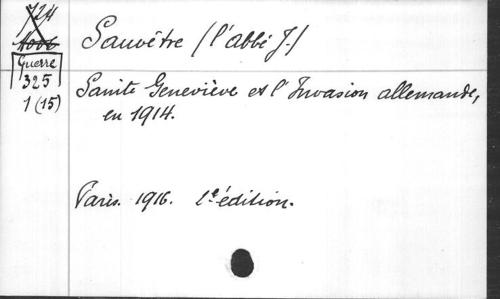 724
Guerre
325
1 (15)
Sauvêtre (l'abbé J.)
Sainte Geneviève et l'Invasion allemande,
en 1914.
Paris. 1916. 1e édition.